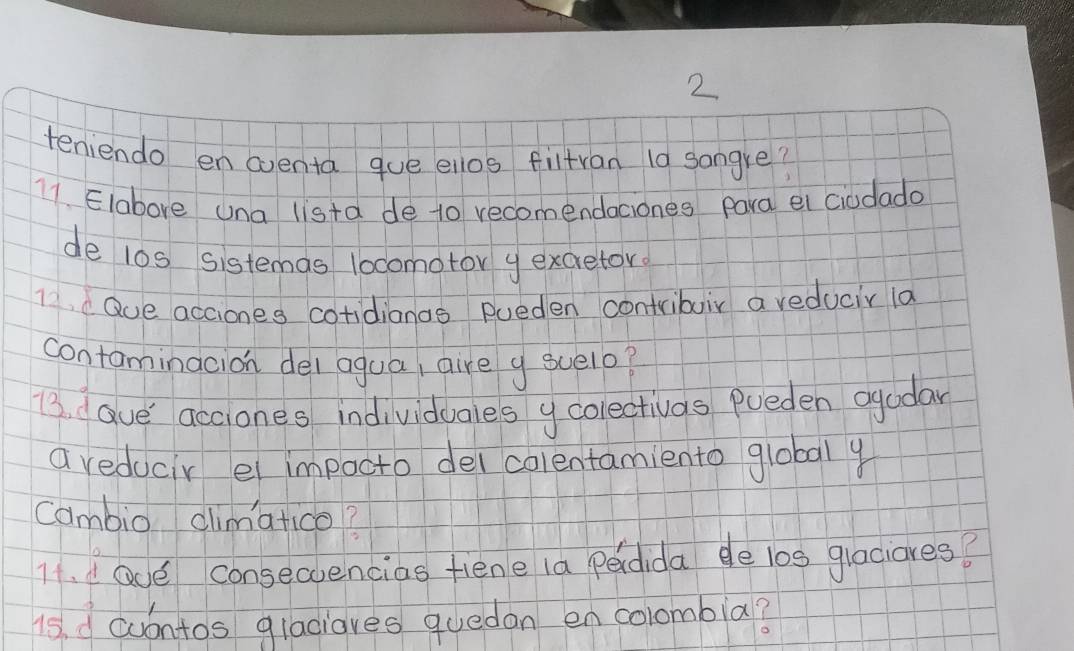 2
teniendo en cuenta que ellos filtran la sangre?
11. Elabore una lista de 10 recomendaciones para el ciudado
de los sistemas locomotor y excretor.
12. ¿Que acciones cotidianas pueden contribuir a reducir la
contaminación del agua, aire y suelo?
13. ¿Qué acciones individuales y colectivas pueden ayudar
a reducir el impacto del calentamiento global y
cambio climático?
14. ¿Qué consecuencias tiene la pérdida de los glaciares?
15. ¿Cuántos glaciares quedan en colombia?